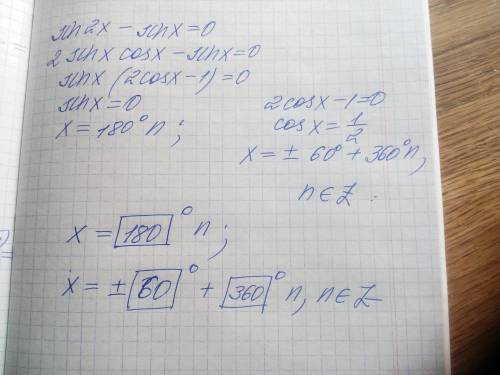 sin 2x - sin x = 0
2 sin x cos x - sin x = 0
sin x (2cos x - 1) = 0
sin x = 0
x = 180° n ;
2cos x - 1 = 0
cos x = 1/2
x = ± 60° + 360° n,
n ∈ Z .
x = 180° n ;
x = ± 60° + 360° n, n ∈ Z